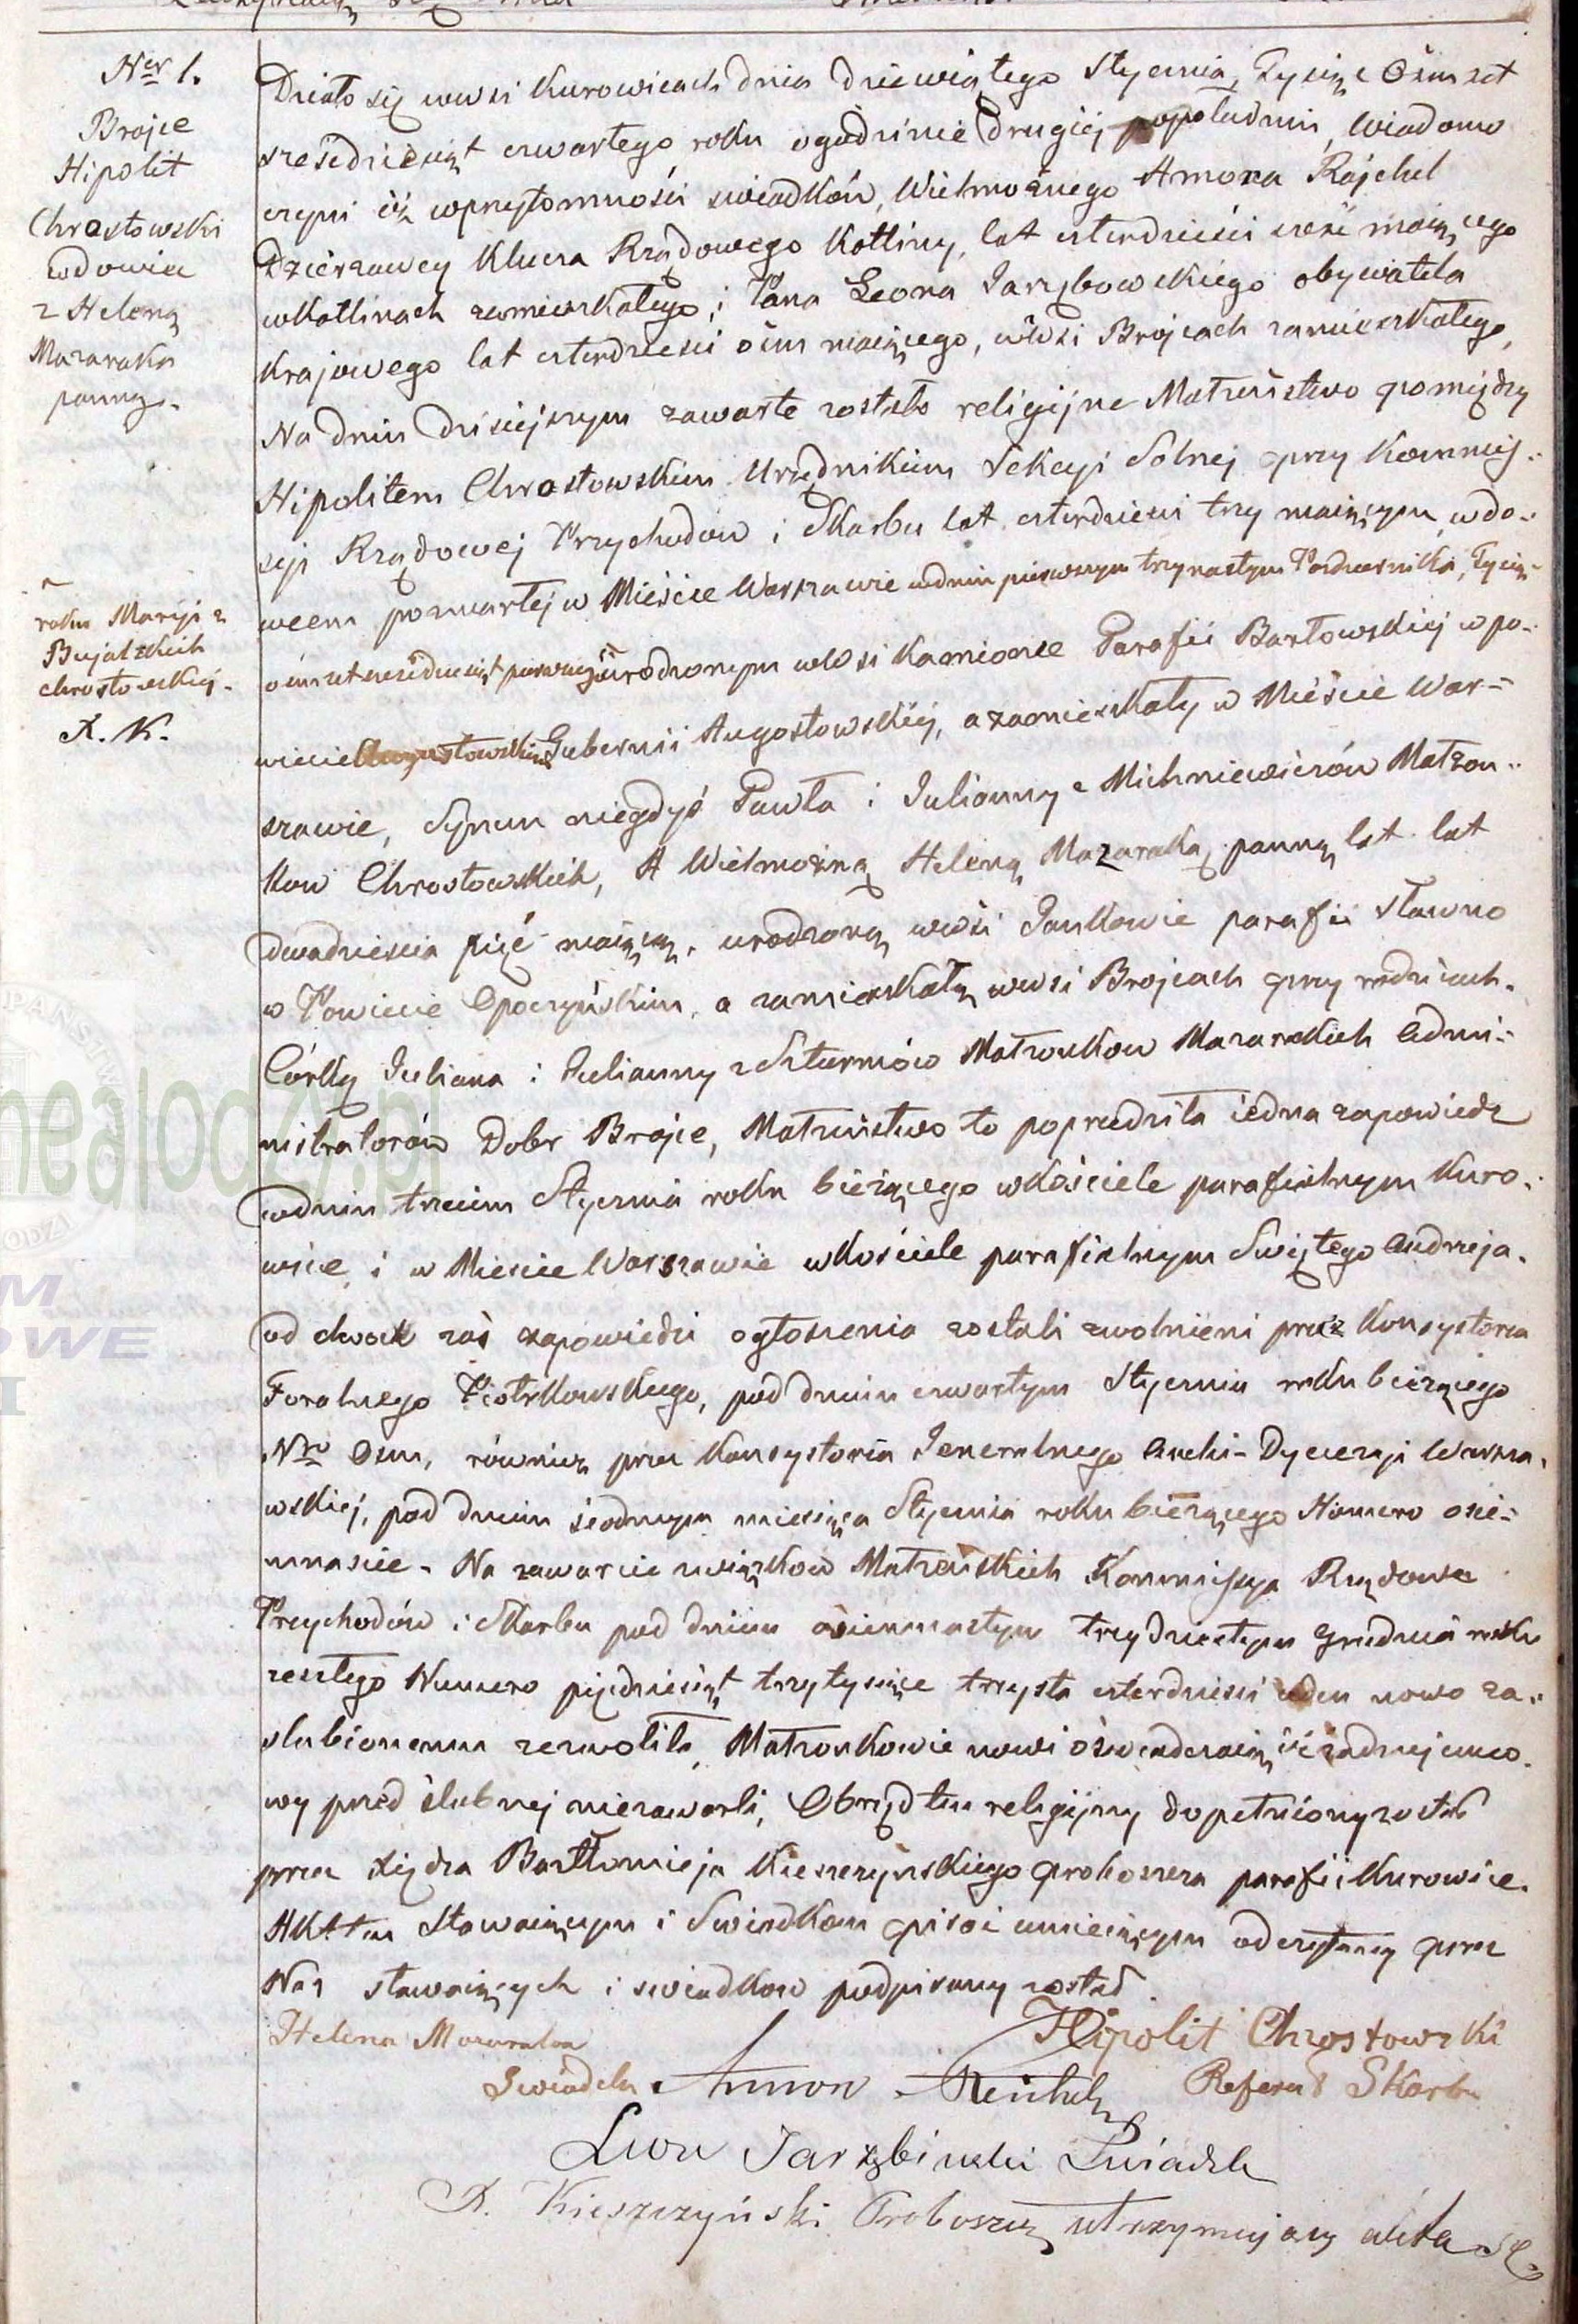 Ner 1.
Brojce
Hipolit
Chrostowski
wdowiec
z Heleną
Mazaraka
panną.
roku Maryi z
Bujalskich
Chrostowskiej.
X. K.
Działo się wewsi Kurowicach dnia dziewiątego Stycznia, Tysiąc Ośmset
sześćdziesiąt czwartego roku ogodzinie drugiej popołudniu, Wiadomo
czyni iż wprzytomności swiadków, Wielmożnego Amona Rajchel
Dzierżawcy Klucza Rządowego Kotliny, lat czterdzieści sześć maiącego
wKotlinach zamieszkałego, i Pana Leona Jarzębowskiego obywatela
Krajowego lat czterdzieści ośm maiącego, wewsi Brojcach zamieszkałego,
Na dniu dzisiejszym zawarte zostało religijne Małżeństwo pomiędzy
Hipolitem Chrostowskim Urzędnikiem Sekcyi Solnej przy Kommis-
syi Rządowej Przychodów i Skarbu lat czterdzieści trzy maiącym, wdo-
wcem pozmarłej w Mieście Warszawie wdniu pierwszym trzynastym Pazdziernika, Tysiąc
ośmset sześćdziesiąt pierwszego urodzonym wewsi Kamionce Parafii Bartowskiej w po-
wiecie Gubernii Augostowskiej, a zamieszkały w Mieście War-
szawie, Synem niegdyś Pawła i Julianny z Michniewiczów Małżon-
kow Chrostowskich, A Wielmożną Heleną Mazaraką, panną lat lat
dwadzieścia pięć maiącą, urodzoną wewsi Jankowie parafii Sławno
w Powiecie Opoczyńskim, a zamieszkałą wewsi Brojcach przy rodzicach.
Córką Juliana i Julianny z Szturmów Małżonkow Mazarakich Admi-
nistratorów Dobr Brojce, Małżeństwo to poprzedziła iedna zapowiedz
wdniu trzecim Stycznia roku bieżącego wkościele parafialnym Kuro-
wice i w Miescie Warszawie wKościele parafialnym Swiętego Andrzeja.
od dwoch zaś zapowiedzi ogłoszenia zostali zwolnieni przez Konsystorza
Foralnego Piotrkowskiego, pod dniem czwartym Stycznia roku bieżącego
Nro Osm, również przez Konsystorza Jeneralnego Archi-Dyecezyi Warsza-
wskiej, pod dniem siodmym miesiąca Stycznia roku bieżącego Numero osie-
mnascie. Na zawarcie związkow Małżeńskich Kommissya Rządowa
Przychodów i Skarbu pod dniem osiemnastym trzydziestym Grudnia roku
zeszłego Numero pięćdziesiąt trzytysiące trzysta czterdzieści jeden nowo za-
slubionemu zezwoliła, Małżonkowie nowi oświadczaią iż żadnej umo-
wy przed ślubnej niezawarli, Obrzęd ten religijny dopełniony został
przez Xiędza Bartłomieja Kieszczyńskiego proboszcza parafii Kurowice.
Akt ten Stawaiącym i Swiadkom pisać umieiącym odczytany przez
Nas stawaiących i swiadkow podpisany został.
Helena Mazaraka
Hipolit Chrostowski
Swiadek Amon Reichel
Referent Skarbu
Leon Jarzębiński Swiadek
X. Kieszczyński Proboszcz utrzymujący akta SC.